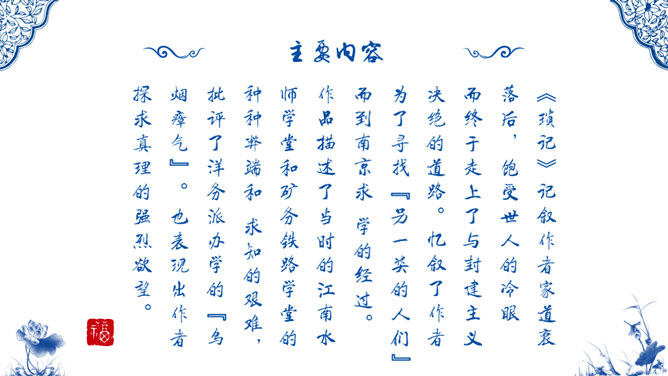 主要内容
《琐记》记叙作者家道衰
落后，饱受世人的冷眼
而终于走上了与封建主义
决绝的道路。忆叙了作者
为了寻找『另一英的人们』
而到南京求 学的经过。
作品描述了当时的江南水
师学堂和矿务铁路学堂的
种种弊端和 求知的艰难，
批评了洋务派办学的『乌
烟瘴气』。也表现出作者
探求真理的强烈欲望。
福